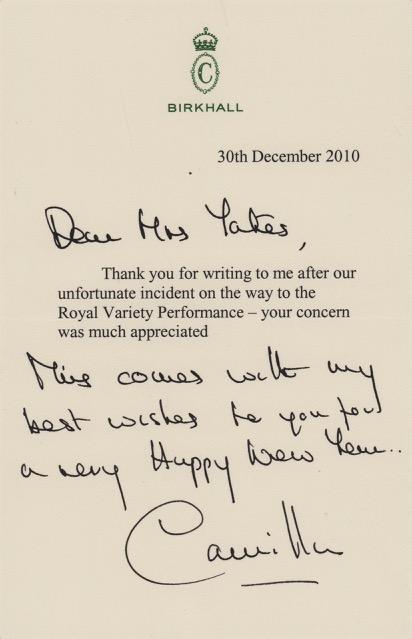 C
BIRKHALL
30th December 2010
Dear Mrs Yates,
Thank you for writing to me after our
unfortunate incident on the way to the
Royal Variety Performance – your concern
was much appreciated
This comes with my
best wishes to you for
a very Happy New Year..
Camilla